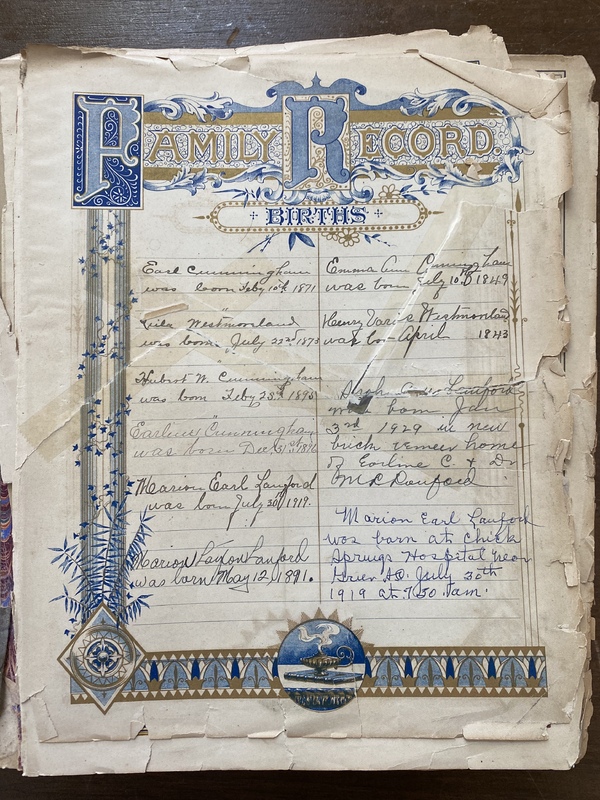 FAMILY RECORD.
BIRTHS
Earl Cunningham
was born Feby 10th 1871
Lula Westmoreland
was born July 22nd 1873
Hubert W. Cunningham
was born Feby 23rd 1895
Earline Cunningham
was born Dec
Marion Earl Lanford
was born July 30th 1919.
Marion Paxton Lanford
was born May 12, 1891.
Emma Ann Cunningham
was born July 10th 1849
Henry Westmorland
was born April 1843
Lanford
was born Jan
3rd 1929 in new
brick veneer home
of Earline C. & Dr
M L Lanford
Marion Earl Lanford
was born at Chick
Springs Hospital near
Greer SC. July 30th
1919 at 7.50 am.